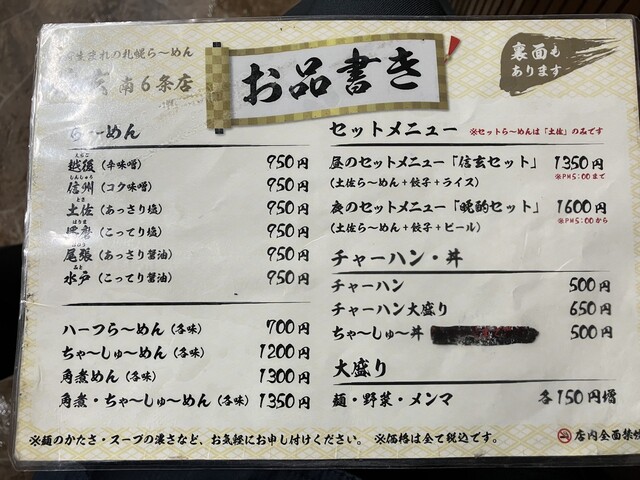 生まれの札幌ら〜めん
南6条店
お品書き
裏面も
あります
らーめん
越後（辛味噌） 950円
信州（コク味噌） 950円
土佐（あっさり塩） 950円
播磨（こってり塩） 950円
尾張（あっさり醤油） 950円
水戸（こってり醤油） 950円
ハーフら〜めん（各味） 700円
ちゃ〜しゅ〜めん（各味） 1200円
角煮めん（各味） 1300円
角煮・ちゃ〜しゅ〜めん（各味） 1350円
セットメニュー ※セットら〜めんは「土佐」のみです
昼のセットメニュー「信玄セット」 1350円
（土佐ら〜めん＋餃子＋ライス） ※PM5:00まで
夜のセットメニュー「晩酌セット」 1600円
（土佐ら〜めん＋餃子＋ビール） ※PM5:00から
チャーハン・丼
チャーハン 500円
チャーハン大盛り 650円
ちゃ〜しゅ〜丼 500円
大盛り
麺・野菜・メンマ 各150円増
※麺のかたさ・スープの濃さなど、お気軽にお申し付けください。 ※価格は全て税込です。
店内全面禁煙